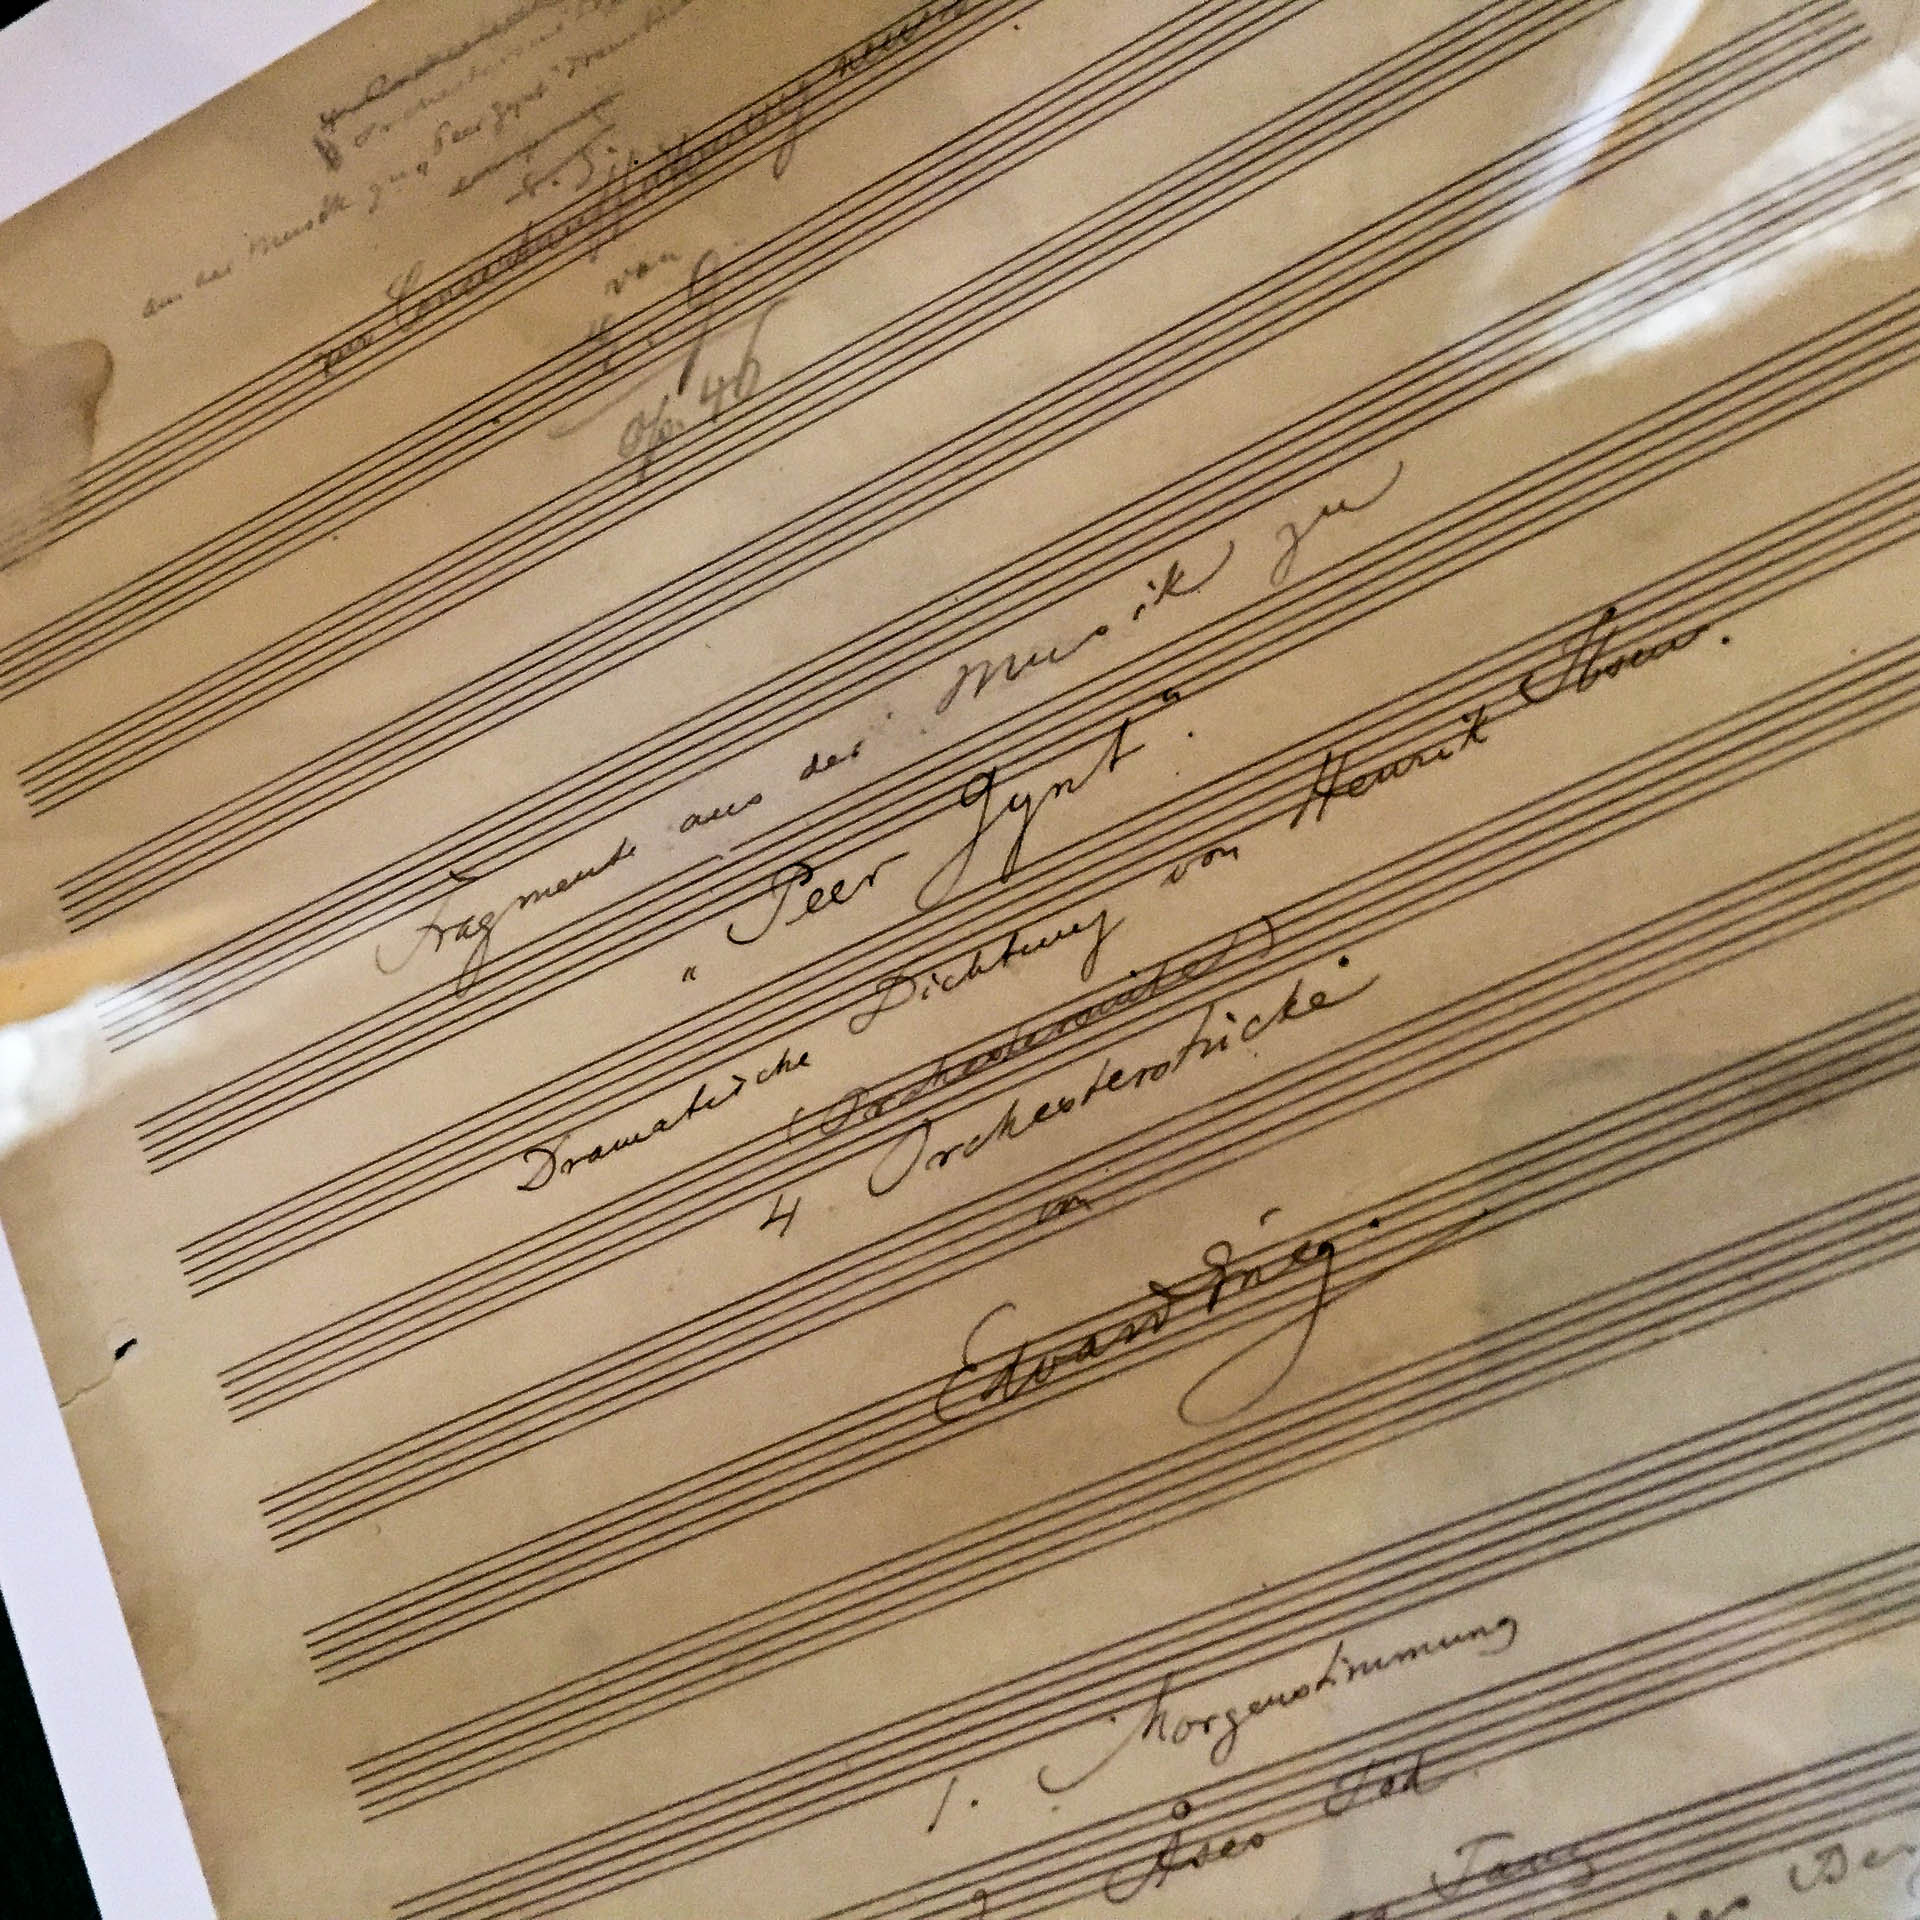 aus der Musik zu „Peer Gynt"
zur Concertaufführung
von
E. G.
Op. 46
Fragmente aus der Musik zu
"Peer Gynt".
Dramatische Dichtung von Henrik Ibsen.
(Orchestersuite)
4 Orchesterstücke
von
Edvard Grieg.
1. Morgenstimmung
2 Åses Tod.
Tanz